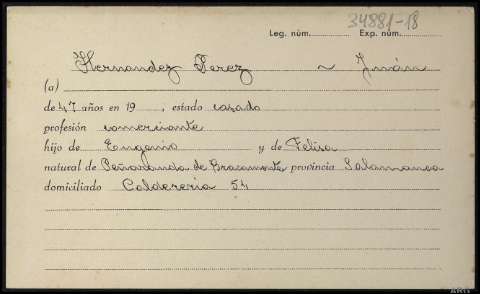 34881-18
Leg. núm. Exp. núm.
Hernandez Perez ~ Juán
(a)
de 47 años en 19 , estado casado
profesión comerciante
hijo de Eugenio y de Felisa
natural de Peñaranda de Bracamonte provincia Salamanca
domiciliado Caldereria 54